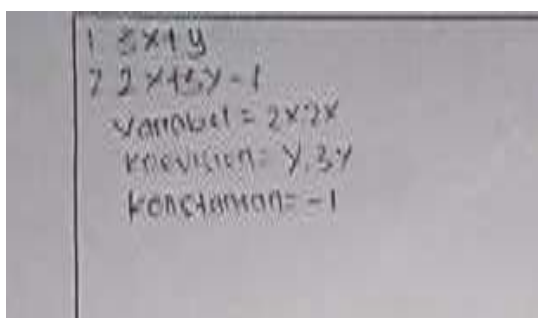 1 3x+y
2 2x+3y-1
Variabel = 2x2x
Koevisien = y.3y
Konstantan = -1